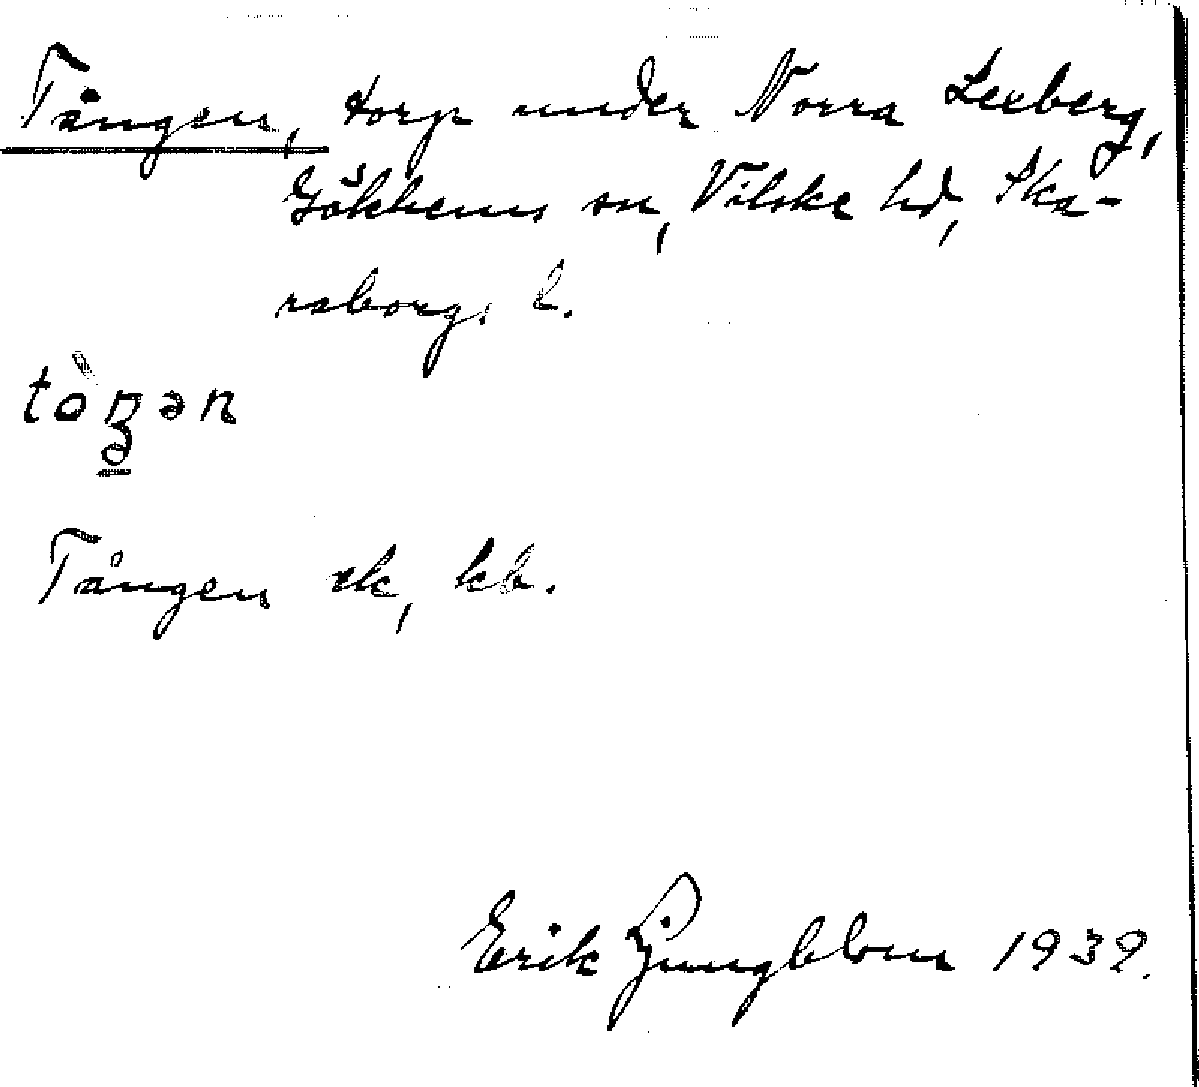 Tången, torp under Norra Lexberg,
Gökhems sn, Vilske hd, Ska-
raborgs l.
tòŋən
Tången ek, kb.
Erik Ljungblom 1939.